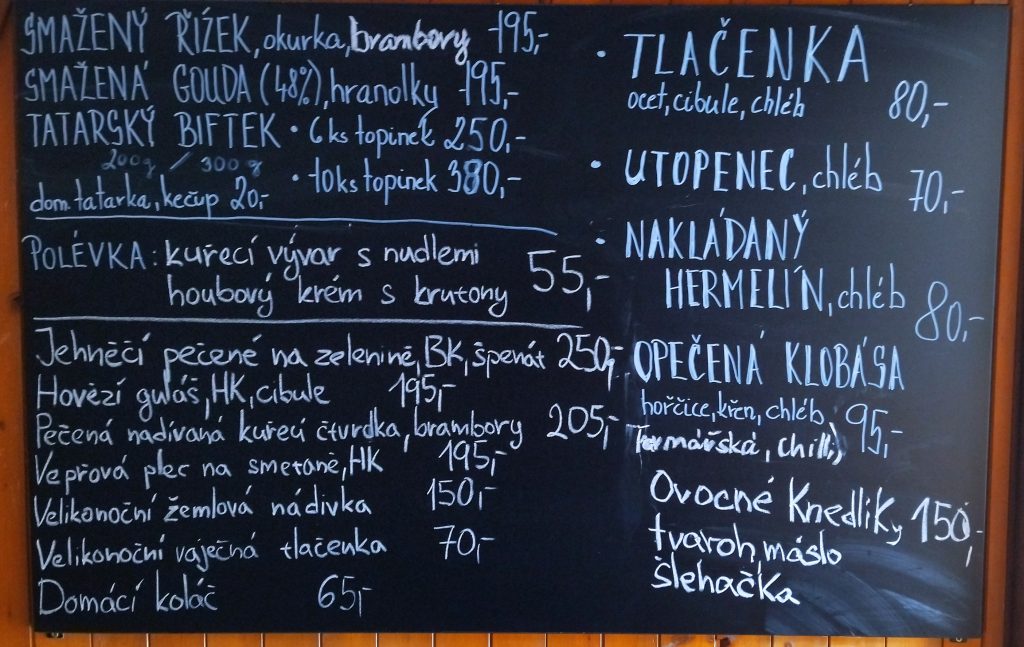 SMAŽENÝ ŘÍZEK, okurka, brambory 195,-
SMAŽENÁ GOUDA (48%), hranolky 195,-
TATARSKÝ BIFTEK • 6 ks topinek 250,-
200g / 300g • 10 ks topinek 380,-
dom. tatarka, kečup 20,-
POLÉVKA: kuřecí vývar s nudlemi
houbový krém s krutony 55,-
Jehněčí pečené na zelenině, BK, špenát 250,-
Hovězí guláš, HK, cibule 195,-
Pečená nadívaná kuřecí čtvrdka, brambory 205,-
Vepřová plec na smetaně, HK 195,-
Velikonoční žemlová nádivka 150,-
Velikonoční vaječná tlačenka 70,-
Domácí koláč 65,-
• TLAČENKA
ocet, cibule, chléb 80,-
• UTOPENEC, chléb 70,-
• NAKLÁDANÝ
HERMELÍN, chléb 80,-
OPEČENÁ KLOBÁSA
hořčice, křen, chléb 95,-
(Farmářská, chilli)
Ovocné Knedlíky 150,-
tvaroh, máslo
šlehačka